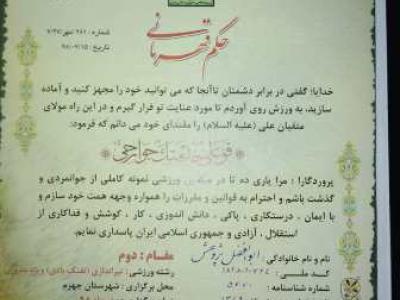 حکم قهرمانی
شماره: ۲۸۱
تاریخ: ۹۸/۰۹/۱۵
خدایا؛ گفتی در برابر دشمنان تاآنجا که می توانید خود را مجهز کنید و آماده
سازید، به ورزش روی آوردم تا مورد عنایت تو قرار گیرم و در این راه مولای
متقیان علی (علیه السلام) را مقتدای خود می دانم که فرمود:
قو علی خدمتک جوارحی
پروردگارا؛ مرا یاری ده تا در ورزشی نمونه کاملی از جوانمردی و
گذشت باشم و احترام به قوانین و مقررات را همواره وجهه همت خود سازم و
با ایمان، درستکاری، پاکی، دانش اندوزی، کار، کوشش و فداکاری از
استقلال، آزادی و جمهوری اسلامی ایران پاسداری نمایم.
نام و نام خانوادگی: ابوالفضل پژوهش
مقام: دوم
کد ملی:
رشته ورزشی: تیراندازی (تفنگ بادی)
شماره شناسنامه:
محل برگزاری: شهرستان جهرم